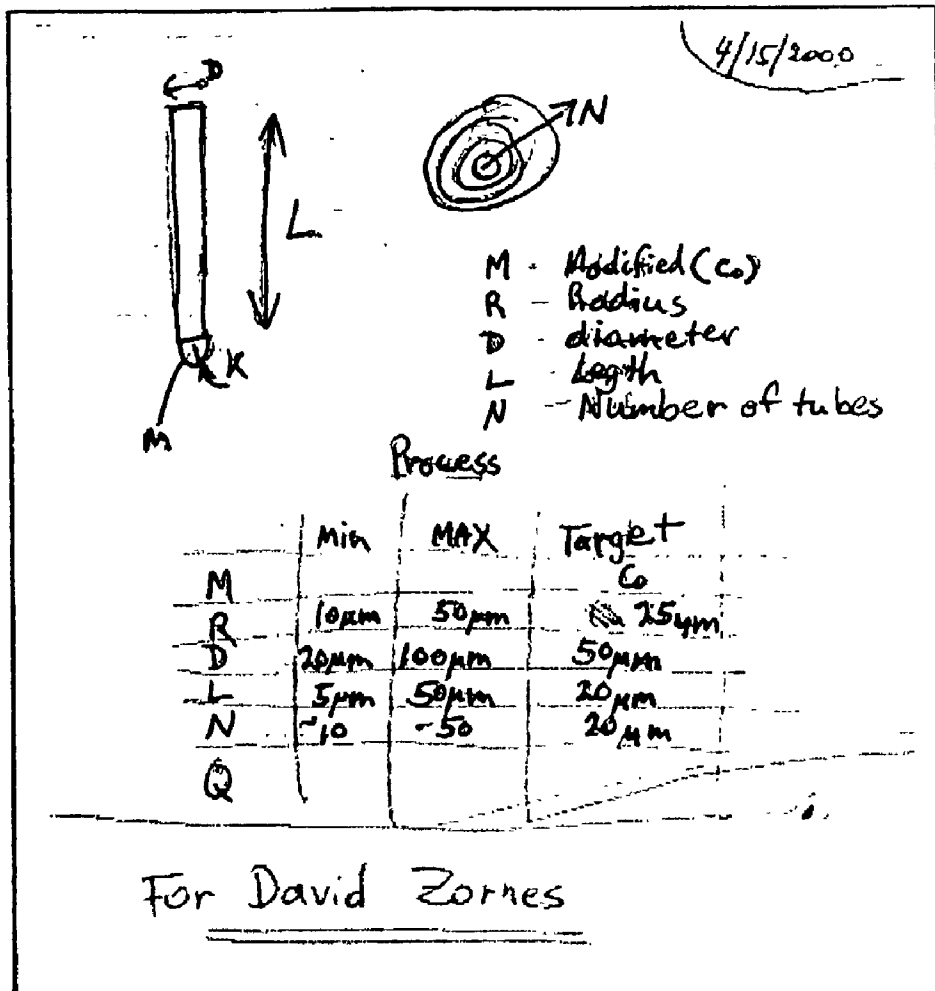 4/15/2000
D
N
L
K
M
M - Modified (Co)
R - Radius
D - diameter
L - Legth
N - Number of tubes
Process
Min MAX Target
M Co
R 10µm 50µm 25µm
D 20µm 100µm 50µm
L 5µm 50µm 20µm
N ~10 ~50 20µm
Q
For David Zornes